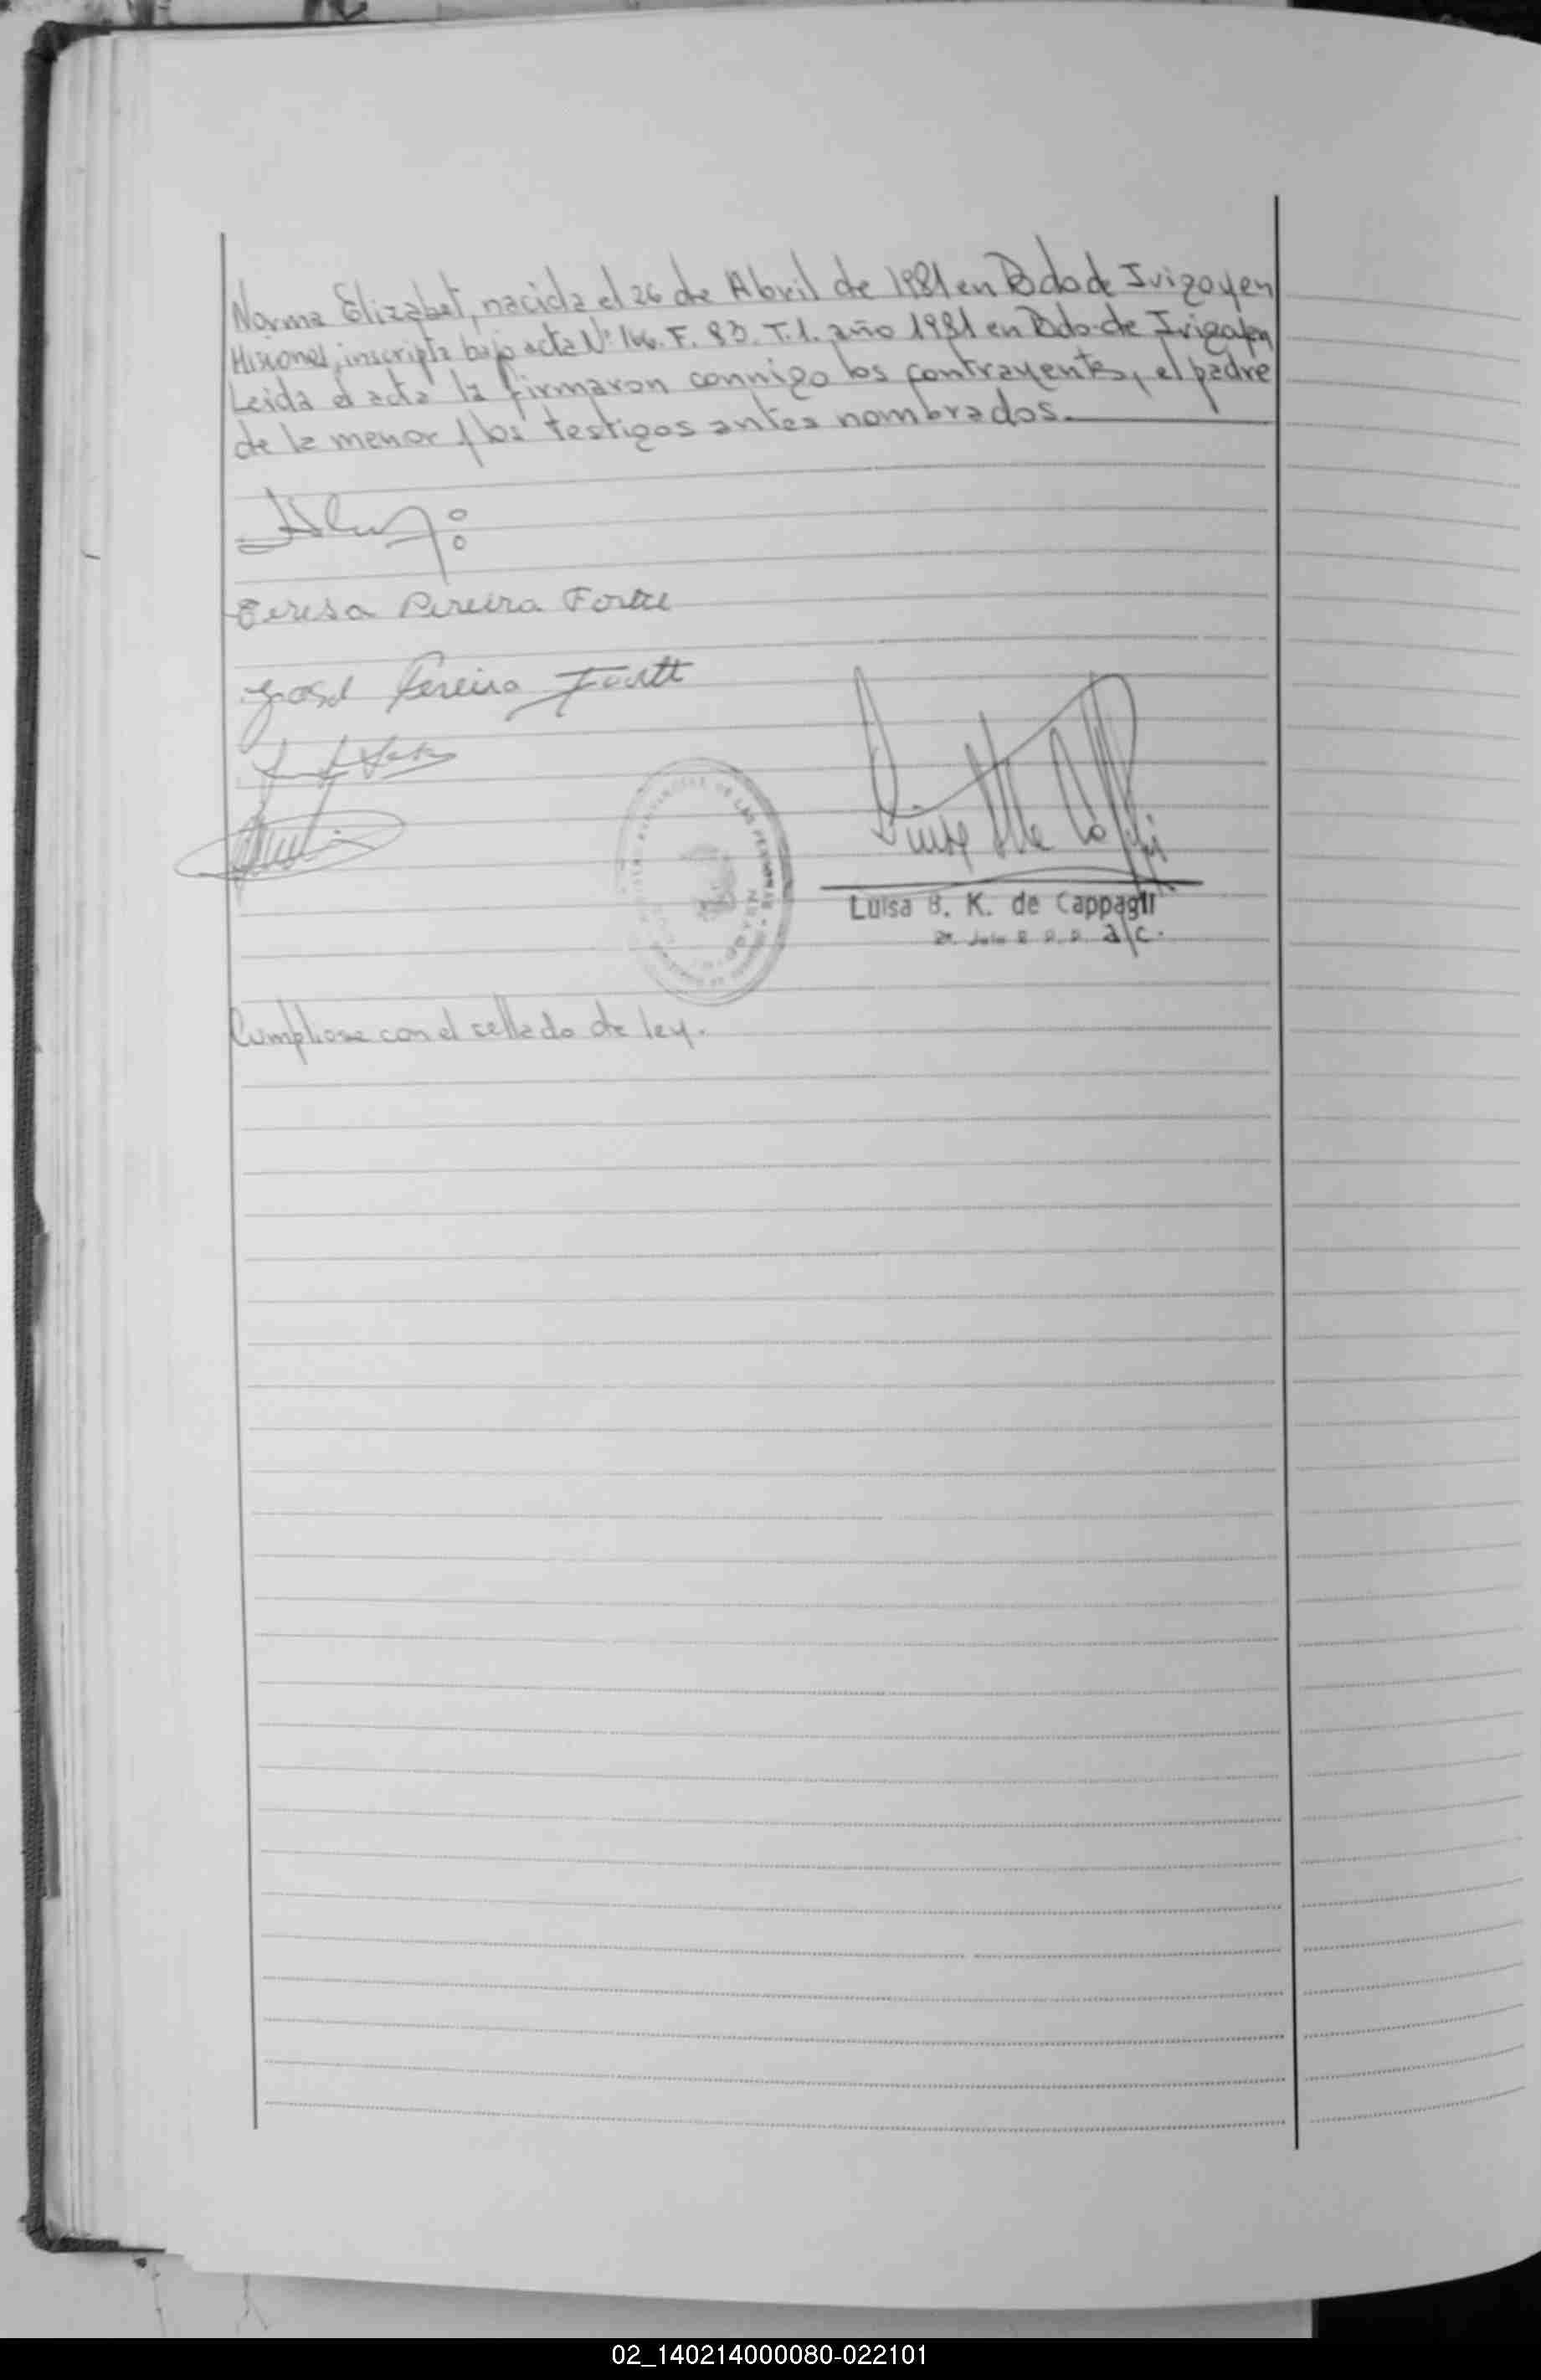 Norma Elizabet, nacida el 26 de Abril de 1981 en Bdo de Irigoyen
Misiones, inscripta bajo acta Nº 166. F. 83. T.1. año 1981 en Bdo. de Irigoyen
Leida el acta la firmaron conmigo los contrayentes, el padre
de la menor y los testigos antes nombrados.
Teresa Pereira Forte
José Pereira
Luisa B. K. de Cappagli
a/c.
DE LAS PERSONAS
Cumpliose con el sellado de ley.
02_140214000080-022101